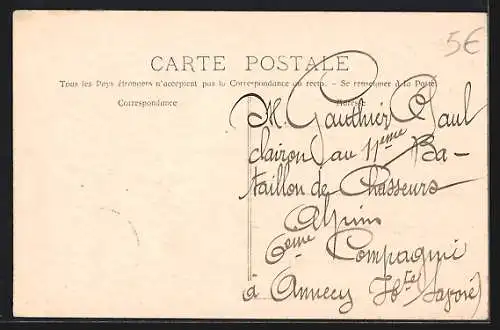 5€
CARTE POSTALE
Tous les Pays étrangers n'acceptent pas la Correspondance au recto. - Se renseigner à la Poste
Correspondance
Adresse
M. Gauthier Paul
clairon au 11eme Ba-
taillon de Chasseurs
Alpins
6eme Compagnie
à Annecy Hte Savoie)